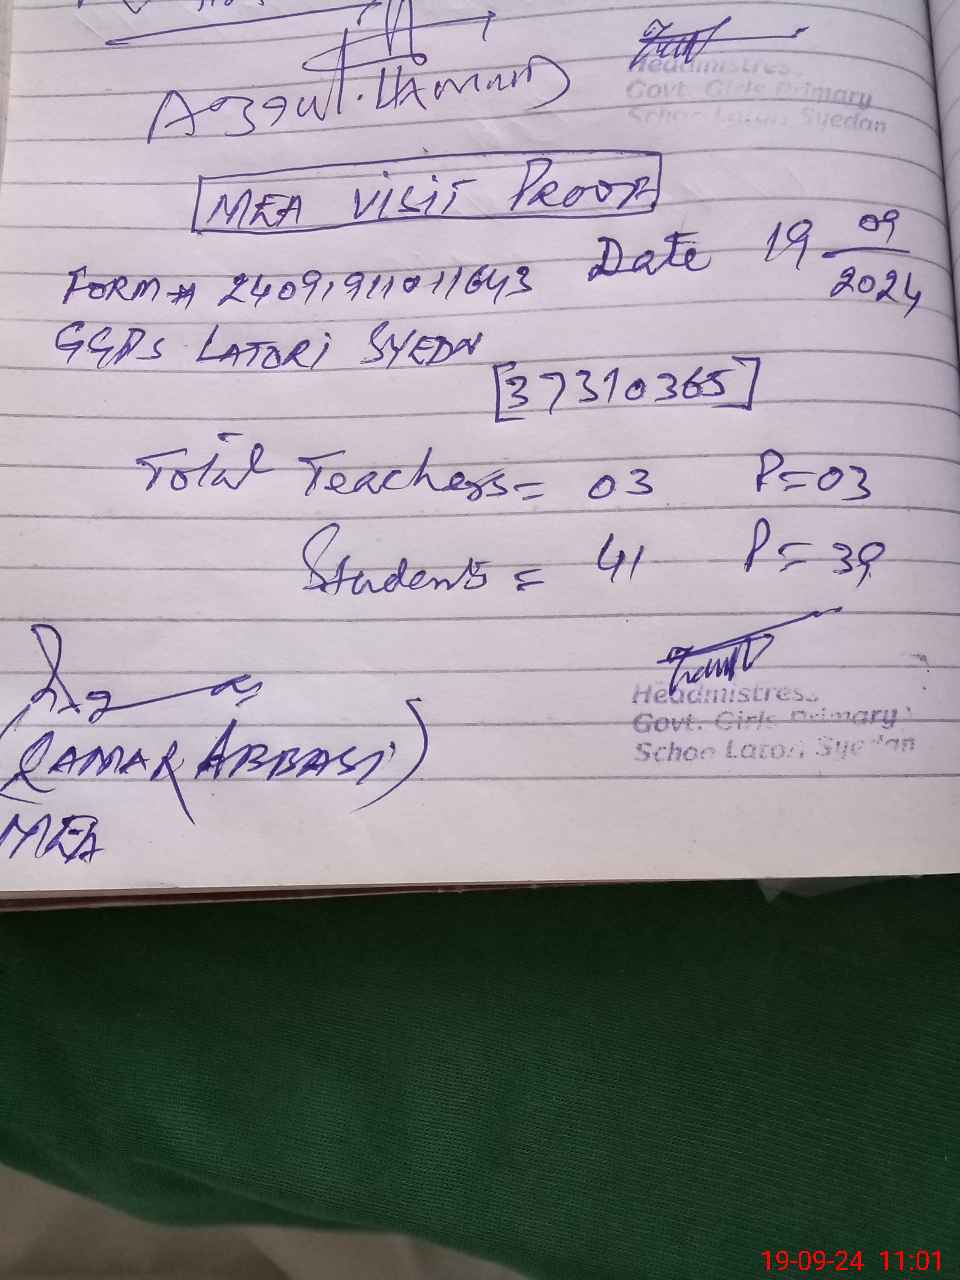 Headmistres
Govt. Girls Primary
Schoo Latori Syedan
MEA VISIT PROOF
Date 19 09
2024
FORM #
GGPS LATORI SYEDN
[37310365]
Total Teachers = 03 P=03
Students = 41 P=39
Headmistress
Govt. Girls Primary
Schoo Latori Syedan
(QAMAR ABBASI)
MEA
19-09-24 11:01